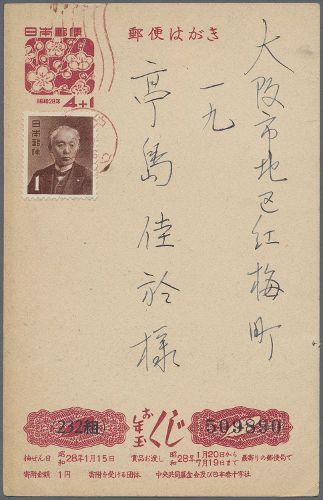 日本郵便
昭和28年
4+1
郵便はがき
日本郵便
1
大阪市北区紅梅町
一九
亭島佳於様
232組
お年玉くじ
509890
抽せん日 昭和28年1月15日 賞品お渡し 昭和28年1月20日から7月19日まで 最寄りの郵便局で
寄附金額 1円 寄附を受ける団体 中央共同募金会及び日本赤十字社